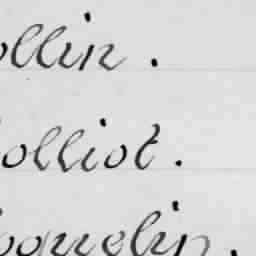 ollin.
olliot.
oquelin.